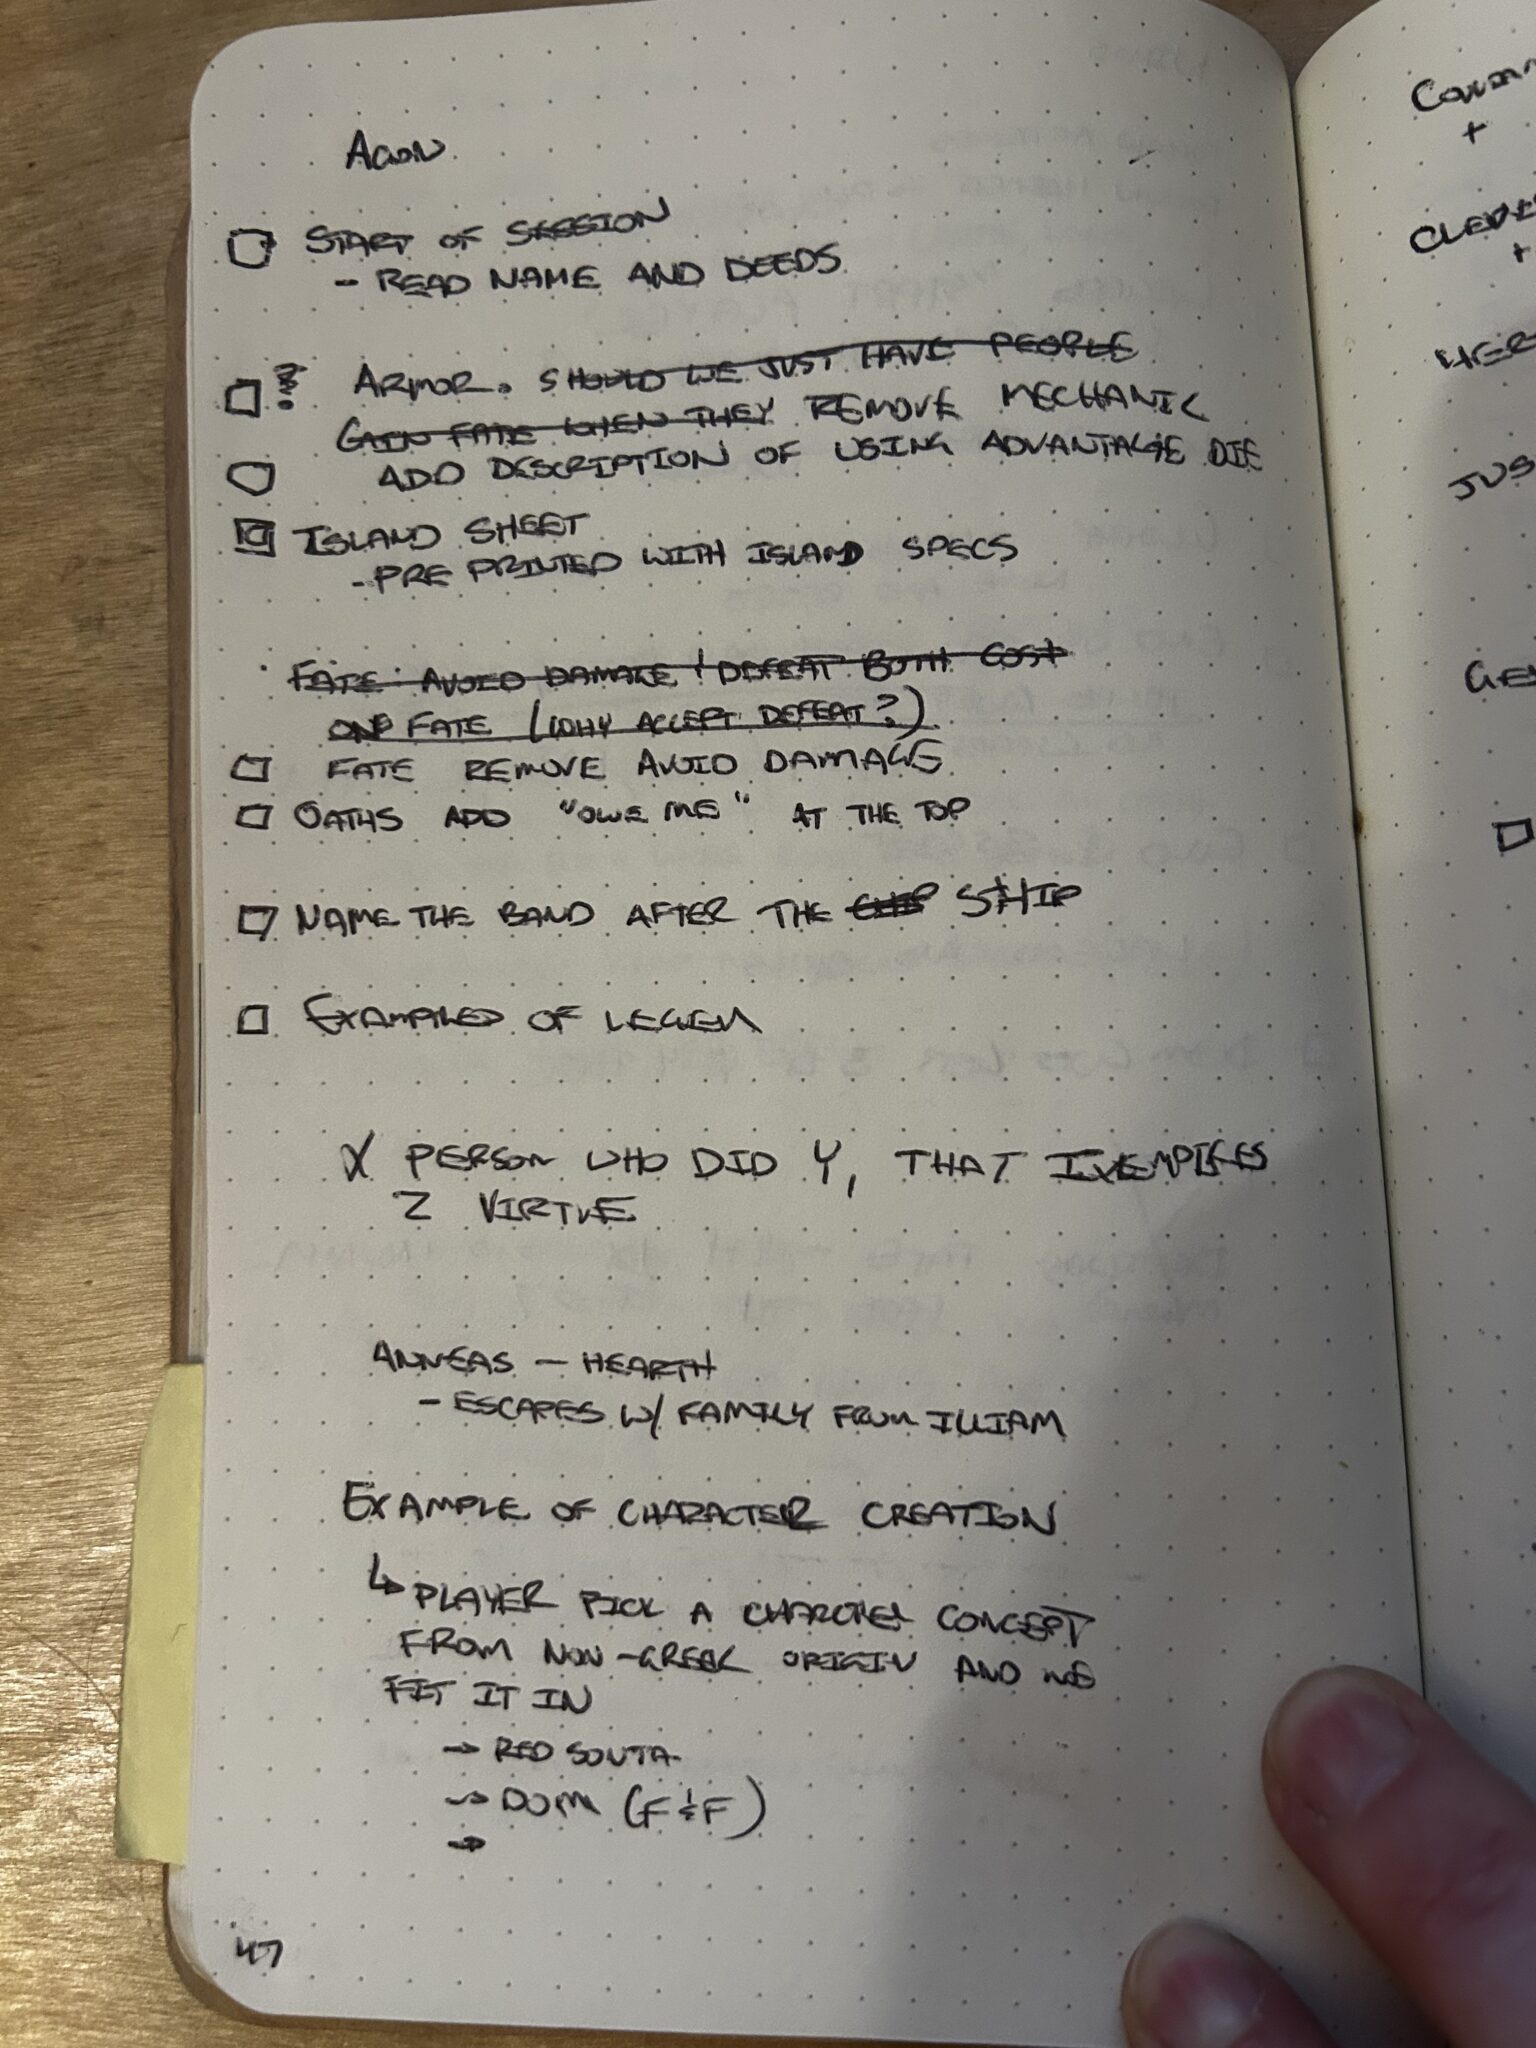 AGON
START OF SESSION
- READ NAME AND DEEDS
? ARMOR. SHOULD WE JUST HAVE PEOPLE
GAIN FATE WHEN THEY REMOVE MECHANIC
ADD DESCRIPTION OF USING ADVANTAGE DIE
ISLAND SHEET
- PRE PRINTED WITH ISLAND SPECS
FATE: AVOID DAMAGE & DEFEAT BOTH COST
ONE FATE (WHY ACCEPT DEFEAT?)
FATE REMOVE AVOID DAMAGE
OATHS ADD "OWE ME" AT THE TOP
NAME THE BAND AFTER THE SHIP
EXAMPLED OF LEGEN
X PERSON WHO DID Y, THAT IXEMPLIFIES
Z VIRTUE
ANNEAS - HEARTH
- ESCAPES W/ FAMILY FROM ILLIAM
EXAMPLE OF CHARACTER CREATION
↳ PLAYER PICK A CONCEPT
FROM NON-GREEK ORIGIN AND WE
FIT IT IN
→ RED SONJA
→ DOM (F&F)
→
47
CLEVE
+
HER
JUS
GE